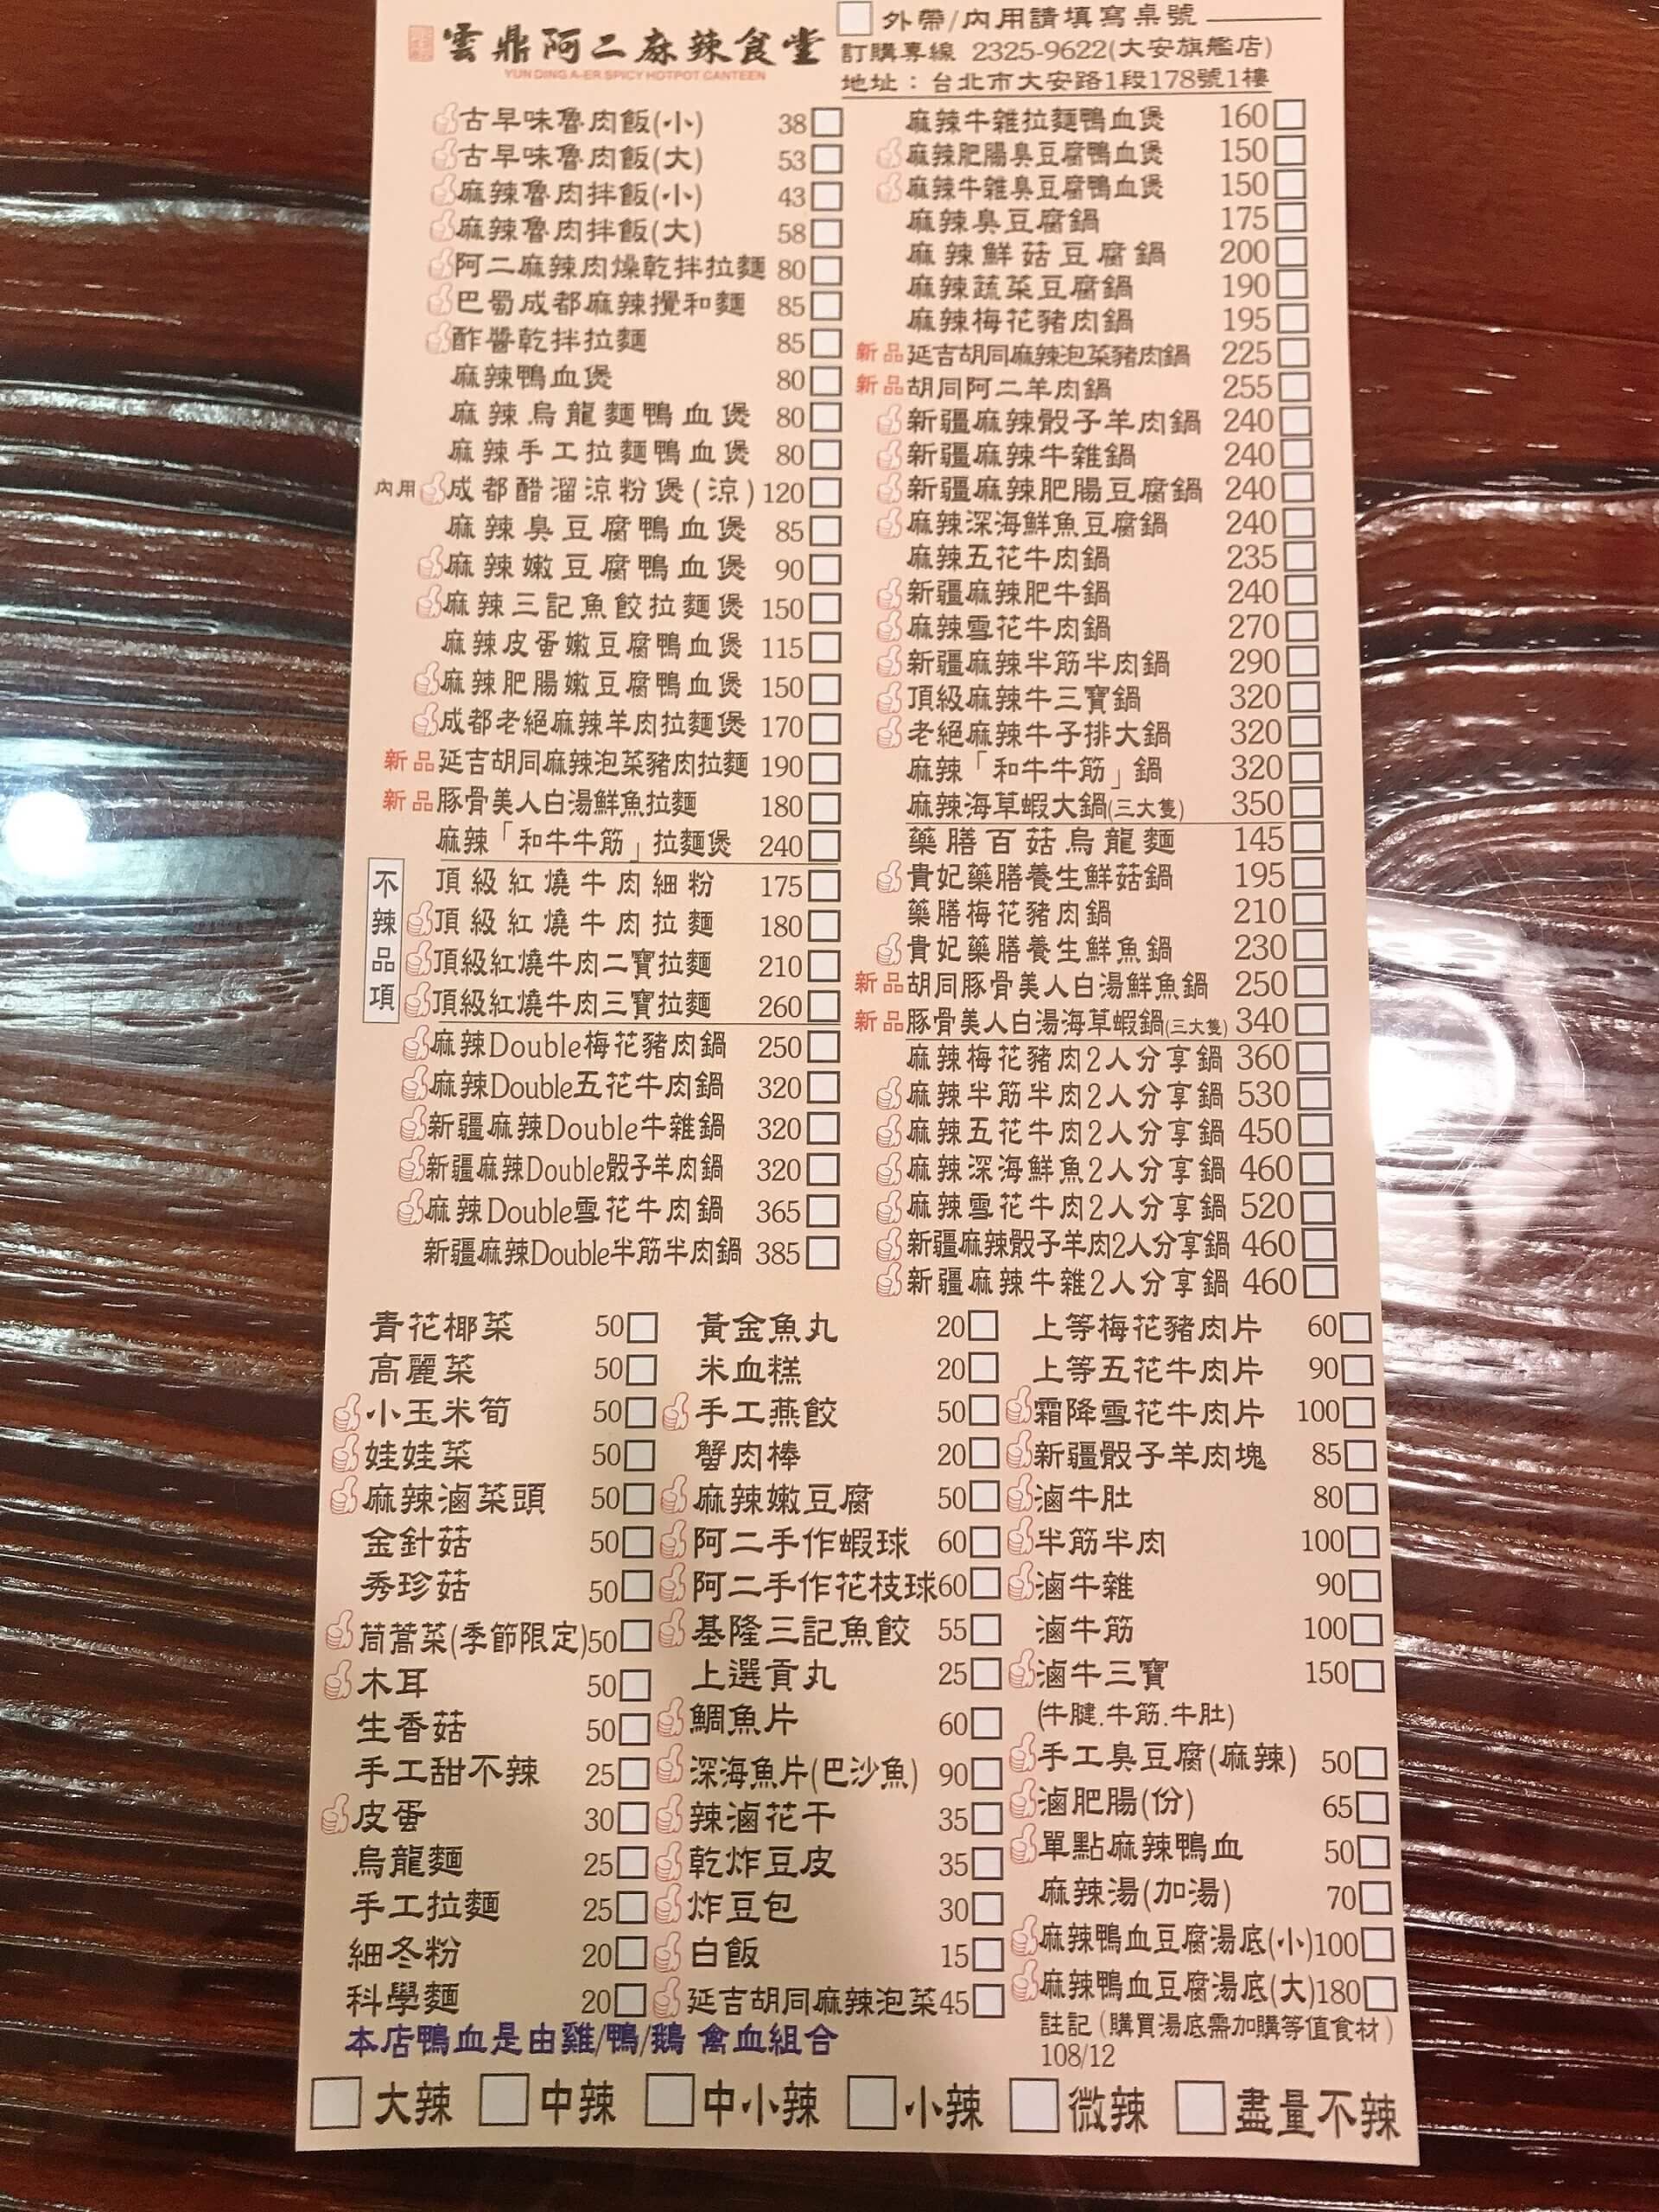 雲鼎阿二麻辣食堂
YUN DING A-ER SPICY HOTPOT CANTEEN
外帶/內用請填寫桌號
訂購專線 2325-9622(大安旗艦店)
地址：台北市大安路1段178號1樓
古早味魯肉飯(小) 38
古早味魯肉飯(大) 53
麻辣魯肉拌飯(小) 43
麻辣魯肉拌飯(大) 58
阿二麻辣肉燥乾拌拉麵 80
巴蜀成都麻辣攪和麵 85
酢醬乾拌拉麵 85
麻辣鴨血煲 80
麻辣烏龍麵鴨血煲 80
麻辣手工拉麵鴨血煲 80
內用 成都醋溜涼粉煲(涼) 120
麻辣臭豆腐鴨血煲 85
麻辣嫩豆腐鴨血煲 90
麻辣三記魚餃拉麵煲 150
麻辣皮蛋嫩豆腐鴨血煲 115
麻辣肥腸嫩豆腐鴨血煲 150
成都老絕麻辣羊肉拉麵煲 170
新品 延吉胡同麻辣泡菜豬肉拉麵 190
新品 豚骨美人白湯鮮魚拉麵 180
麻辣「和牛牛筋」拉麵煲 240
不辣品項
頂級紅燒牛肉細粉 175
頂級紅燒牛肉拉麵 180
頂級紅燒牛肉二寶拉麵 210
頂級紅燒牛肉三寶拉麵 260
麻辣Double梅花豬肉鍋 250
麻辣Double五花牛肉鍋 320
新疆麻辣Double牛雜鍋 320
新疆麻辣Double骰子羊肉鍋 320
麻辣Double雪花牛肉鍋 365
新疆麻辣Double半筋半肉鍋 385
麻辣牛雜拉麵鴨血煲 160
麻辣肥腸臭豆腐鴨血煲 150
麻辣牛雜臭豆腐鴨血煲 150
麻辣臭豆腐鍋 175
麻辣鮮菇豆腐鍋 200
麻辣蔬菜豆腐鍋 190
麻辣梅花豬肉鍋 195
新品 延吉胡同麻辣泡菜豬肉鍋 225
新品 胡同阿二羊肉鍋 255
新疆麻辣骰子羊肉鍋 240
新疆麻辣牛雜鍋 240
新疆麻辣肥腸豆腐鍋 240
麻辣深海鮮魚豆腐鍋 240
麻辣五花牛肉鍋 235
新疆麻辣肥牛鍋 240
麻辣雪花牛肉鍋 270
新疆麻辣半筋半肉鍋 290
頂級麻辣牛三寶鍋 320
老絕麻辣牛子排大鍋 320
麻辣「和牛牛筋」鍋 320
麻辣海草蝦大鍋(三大隻) 350
藥膳百菇烏龍麵 145
貴妃藥膳養生鮮菇鍋 195
藥膳梅花豬肉鍋 210
貴妃藥膳養生鮮魚鍋 230
新品 胡同豚骨美人白湯鮮魚鍋 250
新品 豚骨美人白湯海草蝦鍋(三大隻) 340
麻辣梅花豬肉2人分享鍋 360
麻辣半筋半肉2人分享鍋 530
麻辣五花牛肉2人分享鍋 450
麻辣深海鮮魚2人分享鍋 460
麻辣雪花牛肉2人分享鍋 520
新疆麻辣骰子羊肉2人分享鍋 460
新疆麻辣牛雜2人分享鍋 460
青花椰菜 50
高麗菜 50
小玉米筍 50
娃娃菜 50
麻辣滷菜頭 50
金針菇 50
秀珍菇 50
茼蒿菜(季節限定) 50
木耳 50
生香菇 50
手工甜不辣 25
皮蛋 30
烏龍麵 25
手工拉麵 25
細冬粉 20
科學麵 20
黃金魚丸 20
米血糕 20
手工燕餃 50
蟹肉棒 20
麻辣嫩豆腐 50
阿二手作蝦球 60
阿二手作花枝球 60
基隆三記魚餃 55
上選貢丸 25
鯛魚片 60
深海魚片(巴沙魚) 90
辣滷花干 35
乾炸豆皮 35
炸豆包 30
白飯 15
延吉胡同麻辣泡菜 45
上等梅花豬肉片 60
上等五花牛肉片 90
霜降雪花牛肉片 100
新疆骰子羊肉塊 85
滷牛肚 80
半筋半肉 100
滷牛雜 90
滷牛筋 100
滷牛三寶 150
(牛腱.牛筋.牛肚)
手工臭豆腐(麻辣) 50
滷肥腸(份) 65
單點麻辣鴨血 50
麻辣湯(加湯) 70
麻辣鴨血豆腐湯底(小) 100
麻辣鴨血豆腐湯底(大) 180
註記(購買湯底需加購等值食材)
108/12
本店鴨血是由雞/鴨/鵝 禽血組合
大辣 中辣 中小辣 小辣 微辣 盡量不辣